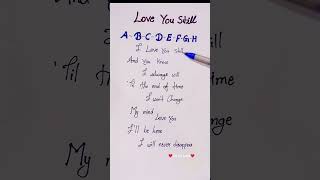 Love You Still
A · B · C · D · E · F · G · H
I Love You still
And You Know
I always will
'Til the end of time
I won't Change
My mind
Love You
I'll be here
I will never